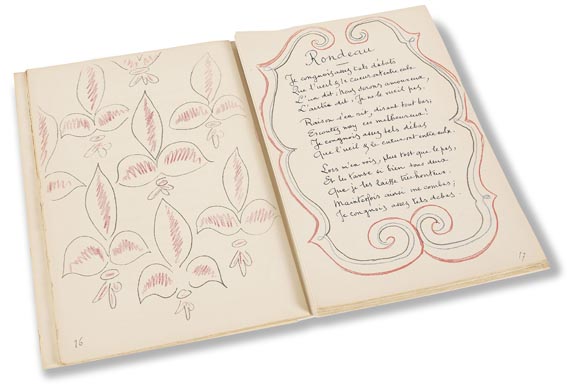 Rondeau
Je congnois assez telz debats
Que l'ueil & le cueur ont entre eulx.
L'un dit: Nous serons amoureux,
L'autre dit: Je ne le vueil pas.
Raison s'en rit, disant tout bas:
Escoutez moy ces malheureux!
Je congnois assez telz debas
Que l'ueil & le cueur ont entre eulx.
Lors m'en vois, plus tost que le pas,
Et les tanse si bien tous deux
Que je les laisse tres honteux.
Maintesfois ainsi me combas;
Je congnois assez telz debas.
16
17